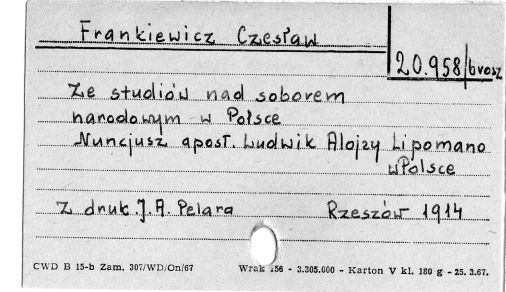 Frankiewicz Czesław
20.958/brosz
Ze studiów nad soborem
narodowym w Polsce
Nuncjusz apost. Ludwik Alojzy Lipomano
w Polsce
Z druk. J. A. Pelara Rzeszów 1914
CWD B 15-b Zam. 307/WD/On/67 Wrak 156 - 3.305.000 - Karton V kl. 180 g - 25. 3.67.